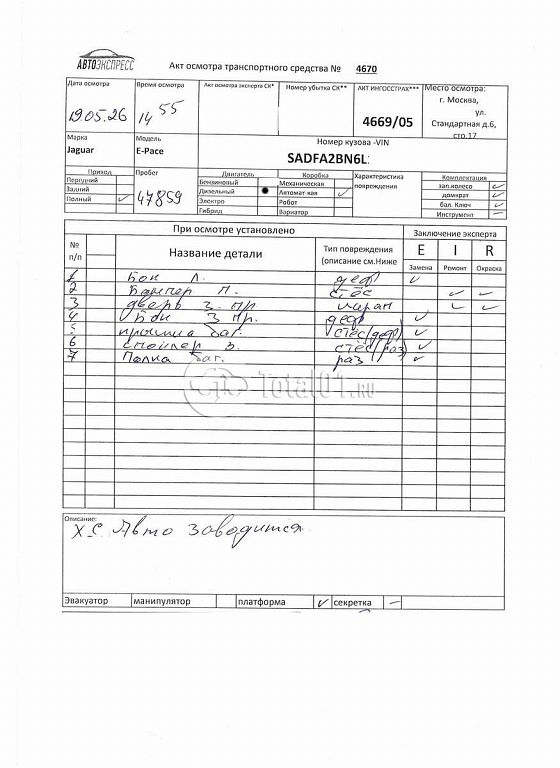 АВТОЭКСПРЕСС
Акт осмотра транспортного средства № 4670
Дата осмотра
19.05.26
Время осмотра
14 55
Акт осмотра эксперта СК*
Номер убытка СК**
АКТ ИНГОССТРАХ***
4669/05
Место осмотра:
г. Москва,
ул.
Стандартная д.6,
стр.17
Марка
Jaguar
Модель
E-Pace
Номер кузова -VIN
SADFA2BN6L
Приход
Передний
Задний
Полный ✓
Пробег
47859
Двигатель
Бензиновый
Дизельный ●
Электро
Гибрид
Коробка
Механическая
Автомат кая ✓
Робот
Вариатор
Характеристика
повреждения
Комплектация
зап.колесо ✓
домкрат ✓
бал. Ключ ✓
Инструмент –
При осмотре установлено
Заключение эксперта
№ п/п
Название детали
Тип повреждения
(описание см.Ниже
E I R
Замена Ремонт Окраска
1 Бок Л. деф ✓
2 Бампер П. стёс ✓ ✓
3 дверь З. Пр. ✓ ✓
4 Бок З Пр. деф ✓
5 крышка баг. стёс/деф ✓
6 спойлер З. стёс/раз ✓
7 Полка баг. раз ✓
Total01.RU
Описание:
Х.С. Авто заводится
Эвакуатор манипулятор платформа ✓ секретка –